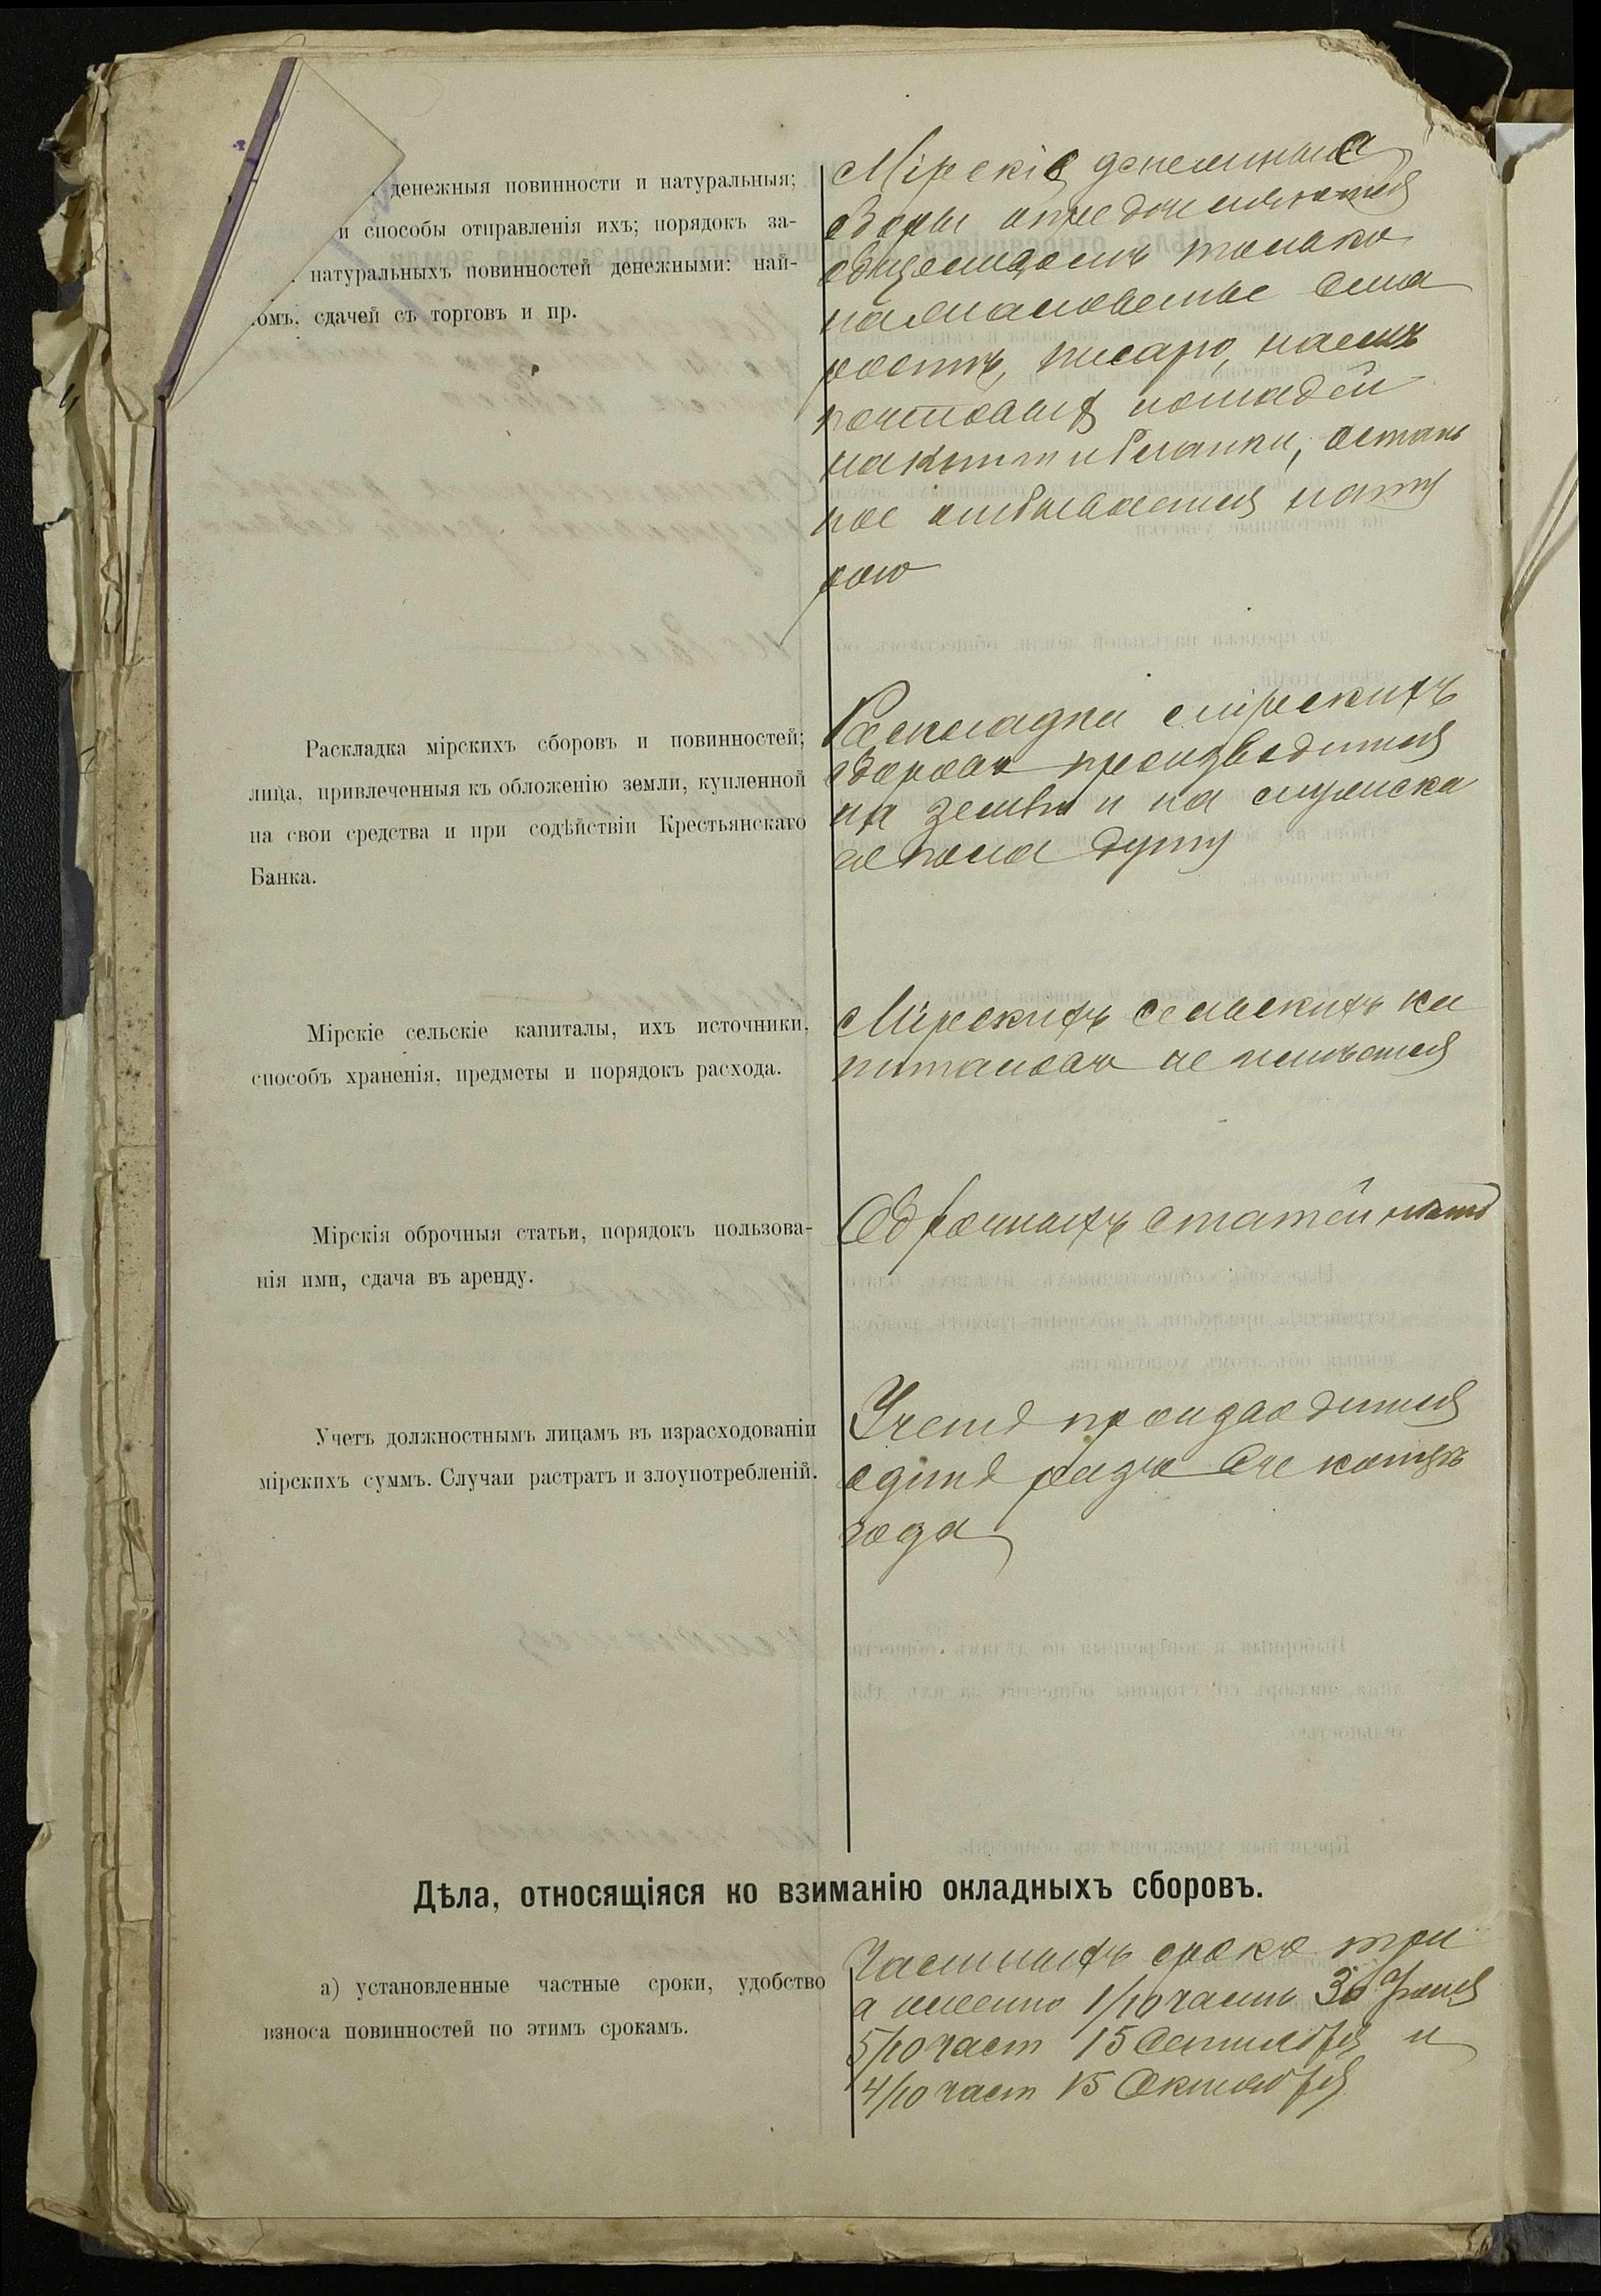 денежныя повинности и натуральныя;
и способы отправленія ихъ; порядокъ за-
натуральныхъ повинностей денежными: най-
омъ, сдачей съ торговъ и пр.
Мірскіе денежные
зборы опредѣляются
обществомъ только
на жалованье
писарю, наемъ
почтовыхъ лошадей
на книги и бланки, осталь
ное отбывается нату
рою
Раскладка мірскихъ сборовъ и повинностей;
лица, привлеченныя къ обложенію земли, купленной
на свои средства и при содѣйствіи Крестьянскаго
Банка.
Раскладки мірскихъ
зборовъ производится
на землю и на мужска
го пола душу
Мірскіе сельскіе капиталы, ихъ источники,
способъ храненія, предметы и порядокъ расхода.
Мірскихъ сельскихъ ка
питаловъ не имѣется
Мірскія оброчныя статьи, порядокъ пользова-
нія ими, сдача въ аренду.
Оброчныхъ статей нѣтъ
Учетъ должностнымъ лицамъ въ израсходованіи
мірскихъ суммъ. Случаи растратъ и злоупотребленій.
Учетъ производится
одинъ разъ въ концѣ
года
Дѣла, относящіяся ко взиманію окладныхъ сборовъ.
а) установленные частные сроки, удобство
взноса повинностей по этимъ срокамъ.
Частныхъ срока три
а именно 1/10 часть 30
5/10 част 15 Сентября и
4/10 част 15 Октября